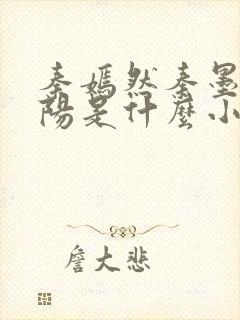 秦嫣然秦墨
陽是什麼小
詹大悲